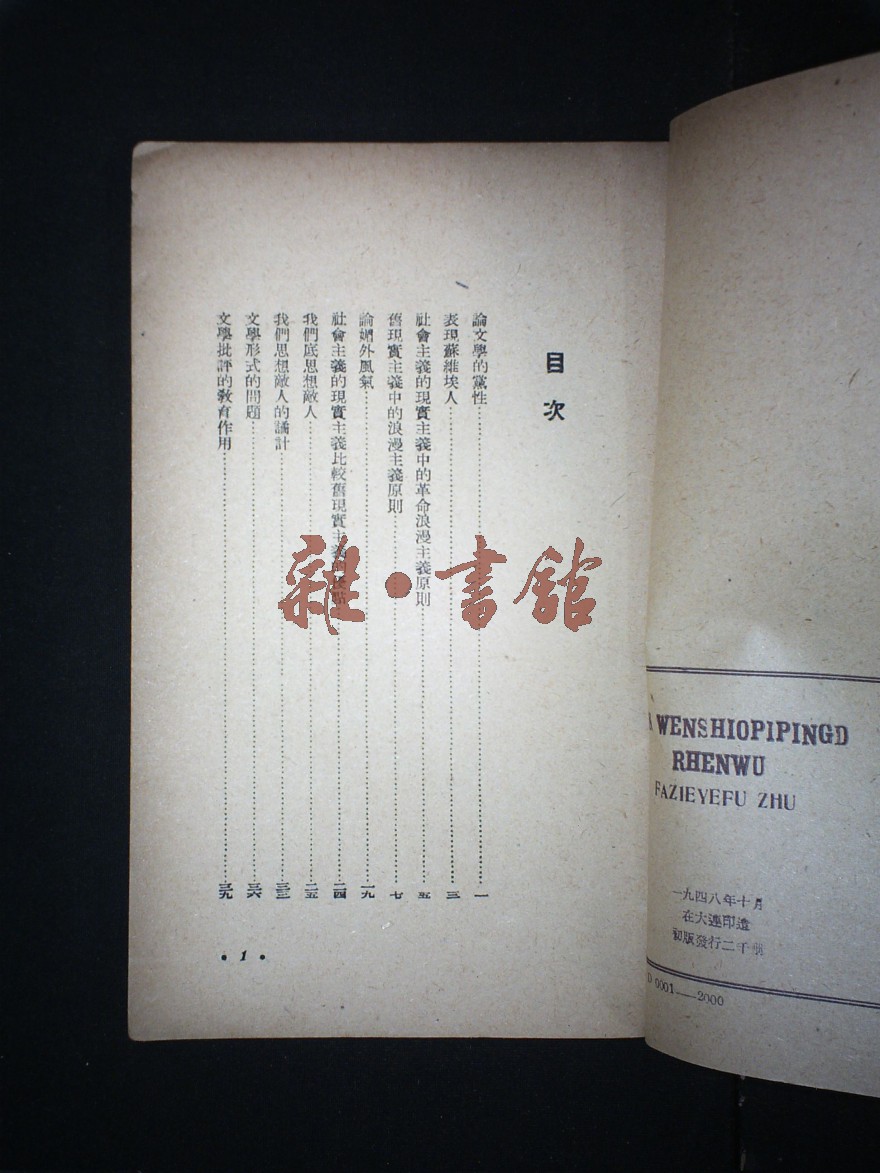 目次
論文學的黨性 一
表現蘇維埃人 三
社會主義的現實主義中的革命浪漫主義原則 五
舊現實主義中的浪漫主義原則 七
論媚外風氣 一九
社會主義的現實主義比較舊現實主義的優點 二四
我們底思想敵人 二五
我們思想敵人的譎計 三三
文學形式的問題 三六
文學批評的教育作用 三九
• 1 •
雜·書館
WENSHIOPIPINGD
RHENWU
FAZIEYEFU ZHU
一九四八年十月
在大連印造
初版發行二千冊
D 0001—2000